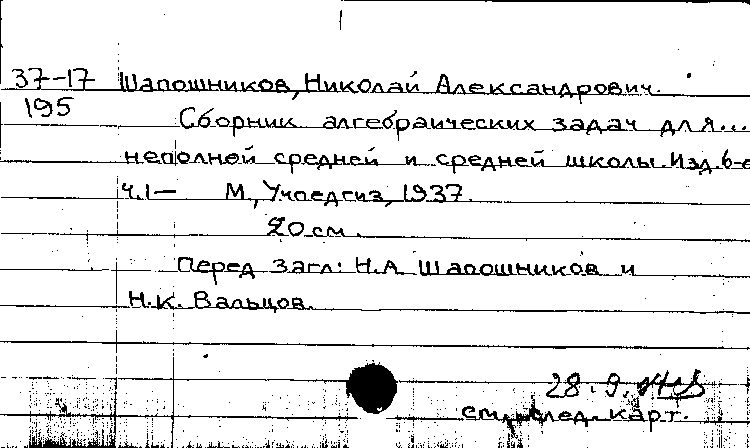 37-17 Шапошников, Николай Александрович.
195
Сборник алгебраических задач для...
неполной средней и средней школы. Изд. 6-е
ч.1- М., Учпедгиз, 1937.
20 см.
Перед загл: Н.А. Шапошников и
Н.К. Вальцов.
28.9.
см. след. карт.